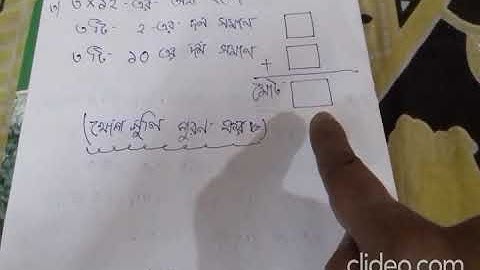 ৩) ৩ × ১২ -এর
৩টি ২ -এর দল সমান
৩টি ১০ এর দল সমান
+
মোট
(খোপ গুলি পুরণ কর)
clideo.com